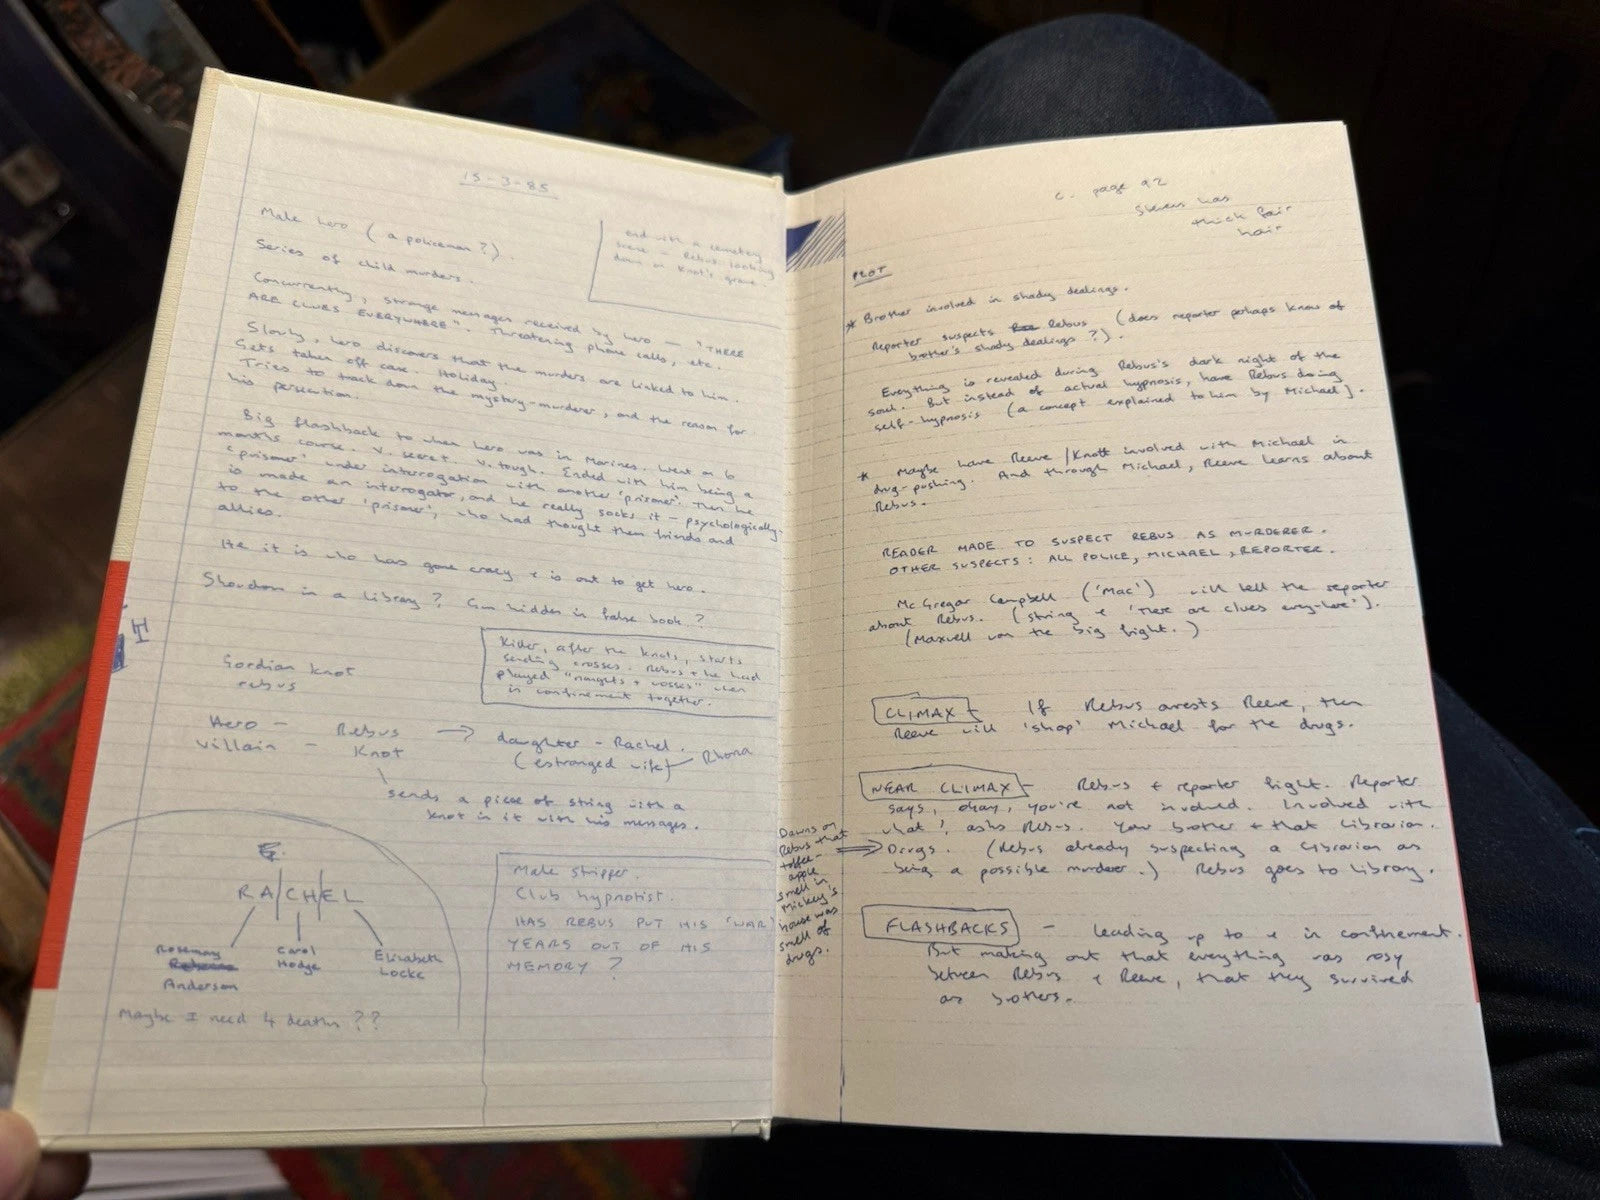 15-3-85
Male hero (a policeman?).
Series of child murders.
end with a cemetery
scene – Rebus looking
down on Knot's grave.
Concurrently, strange messages received by hero – "THERE
ARE CLUES EVERYWHERE". Threatening phone calls, etc.
Slowly, hero discovers that the murders are linked to him.
Gets taken off case. Holiday.
Tries to track down the mystery-murderer, and the reason for
his persecution.
Big flashback to when hero was in Marines. Went on 6
months course. V. secret. V. tough. Ended with him being a
'prisoner' under interrogation with another 'prisoner'. Then he
is made an interrogator, and he really socks it – psychologically –
to the other 'prisoner', who had thought them friends and
allies.
He it is who has gone crazy & is out to get hero.
Showdown in a library? Gun hidden in false book?
Killer, after the knots, starts
sending crosses. Rebus & he had
played "noughts & crosses" when
in confinement together.
Gordian knot
rebus
Hero – Rebus → daughter – Rachel.
Villain – Knot (estranged wife) Rhona
sends a piece of string with a
knot in it with his messages.
RA/CH/EL
Rosemary
Anderson
Carol
Hodge
Elizabeth
Locke
Maybe I need 4 deaths??
Male stripper.
Club hypnotist.
HAS REBUS PUT HIS 'WAR'
YEARS OUT OF HIS
MEMORY?
c. page 92
Stevens has
thick fair
hair
PLOT
* Brother involved in shady dealings.
Reporter suspects Rebus (does reporter perhaps know of
brother's shady dealings?).
Everything is revealed during Rebus's dark night of the
soul. But instead of actual hypnosis, have Rebus doing
self-hypnosis (a concept explained to him by Michael).
* Maybe have Reeve/Knott involved with Michael in
drug-pushing. And through Michael, Reeve learns about
Rebus.
READER MADE TO SUSPECT REBUS AS MURDERER.
OTHER SUSPECTS: ALL POLICE, MICHAEL, REPORTER.
McGregor Campbell ('Mac') will tell the reporter
about Rebus. (string & 'There are clues everywhere').
(Maxwell won the big fight.)
CLIMAX – If Rebus arrests Reeve, then
Reeve will 'shop' Michael for the drugs.
NEAR CLIMAX – Rebus & reporter fight. Reporter
says, okay, you're not involved. Involved with
what?, asks Rebus. Your brother & that librarian.
Drugs. (Rebus already suspecting a librarian as
being a possible murderer.) Rebus goes to library.
Dawns on
Rebus that
toffee-
apple
smell in
Mickey's
house was
smell of
drugs.
FLASHBACKS – leading up to & in confinement.
But making out that everything was rosy
between Rebus & Reeve, that they survived
as brothers.